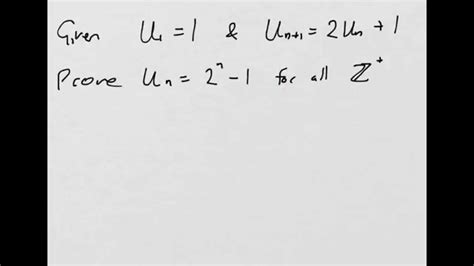 Given U₁ = 1 & Uₙ₊₁ = 2Uₙ + 1
Prove Uₙ = 2ⁿ - 1 for all ℤ⁺